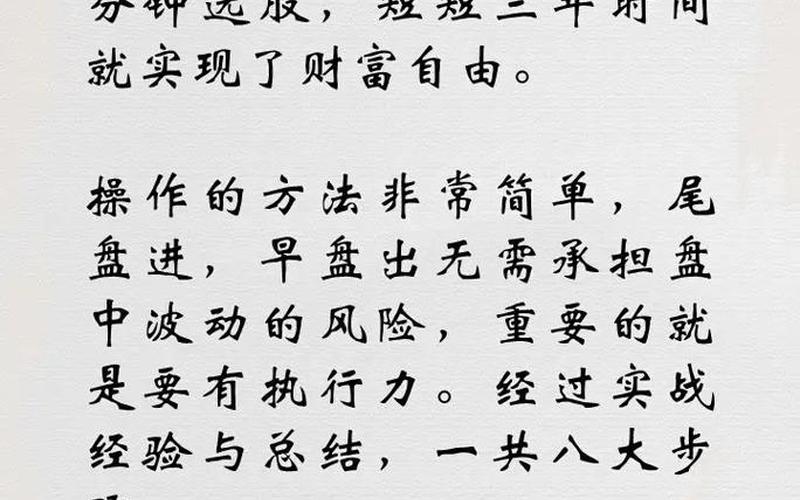 分钟选股，短短三年时间
就实现了财富自由。
操作的方法非常简单，尾
盘进，早盘出无需承担盘
中波动的风险，重要的就
是要有执行力。经过实战
经验与总结，一共八大步